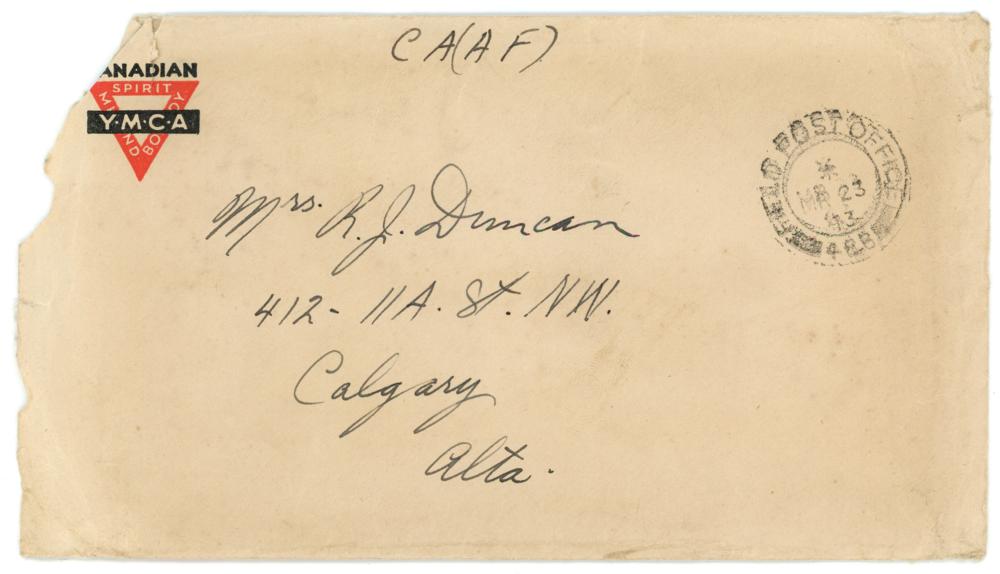 CA(AF)
ANADIAN
SPIRIT
MIND
BODY
Y·M·C·A
FIELD POST OFFICE
MR 23
43
Mrs. R.J. Duncan
412- 11A. St. NW.
Calgary
Alta.